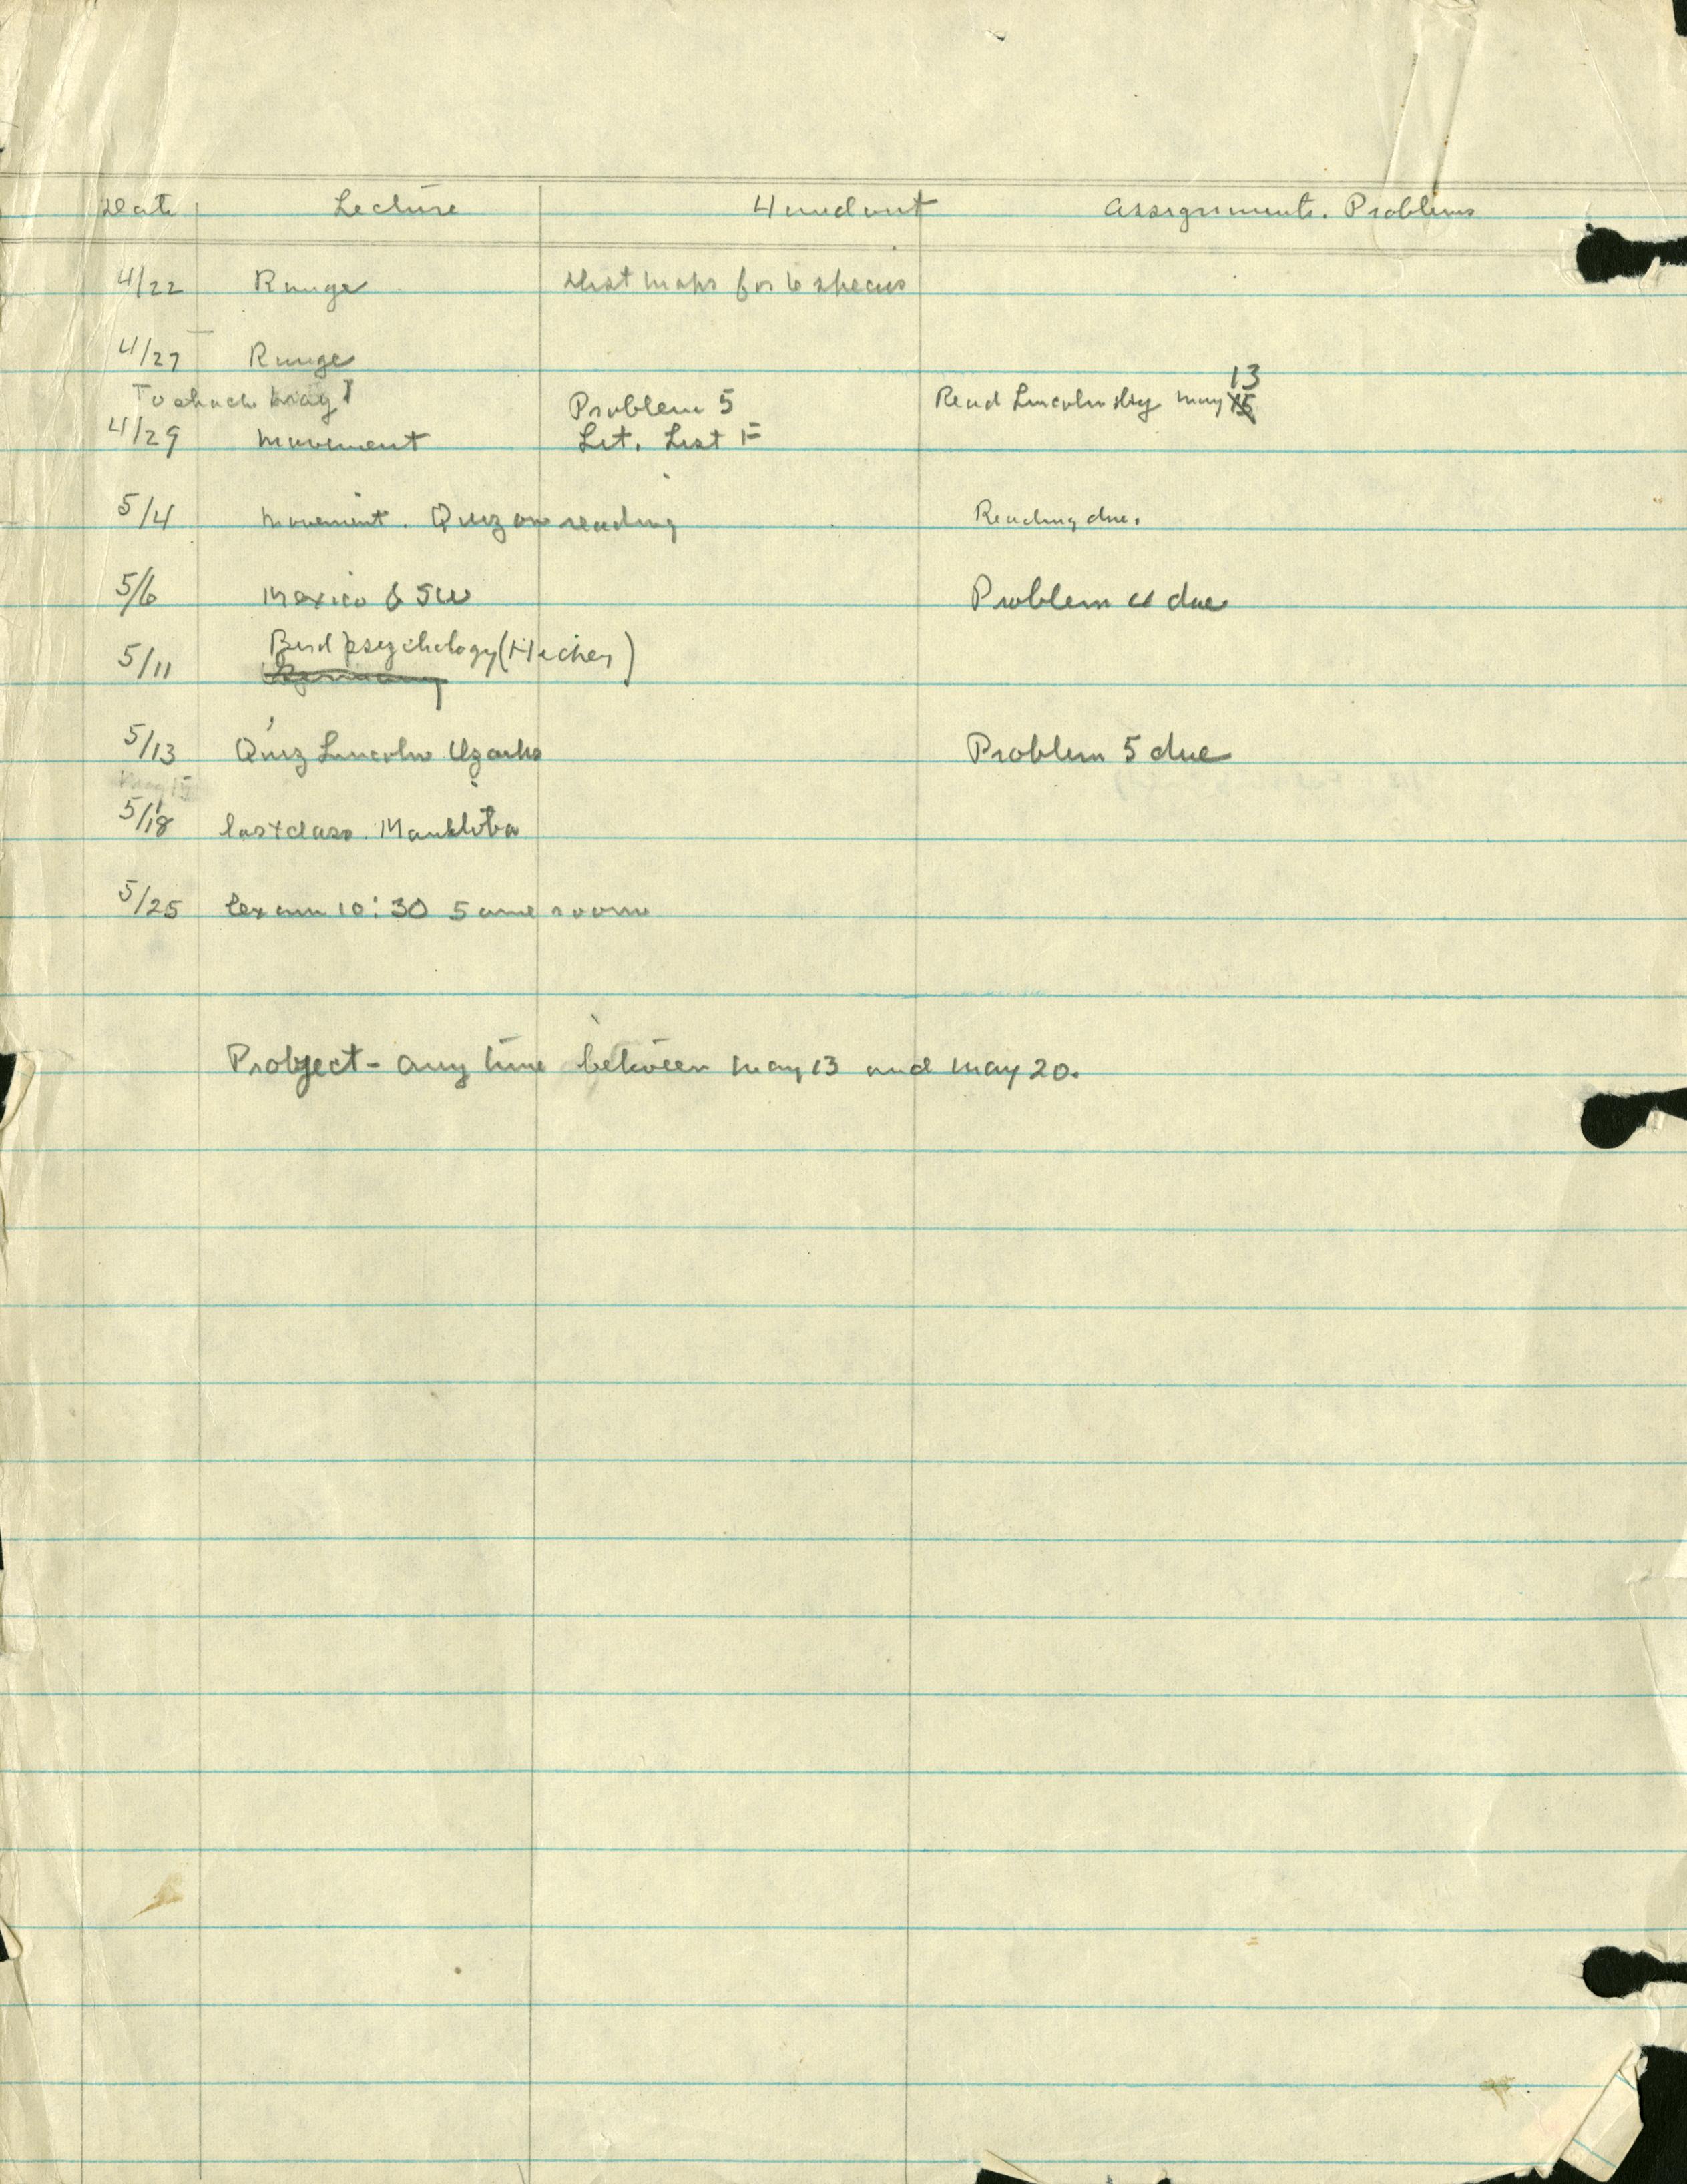 Date Lecture Handout Assignments. Problems
4/22 Range Dist maps for 6 species
4/27 Range
To shack May 1 Problem 5 Read Lincoln by May 15 13
4/29 Movement Lit. List F
5/4 Movement. Quiz on reading Reading due.
5/6 Mexico & SW Problem 4 due
5/11 Bird psychology (Hickey)
Germany
5/13 Quiz Lincoln Ozarks Problem 5 due
May 15
5/18 last class. Manitoba
5/25 Exam 10:30 Same room
Probject - any time between May 13 and May 20.